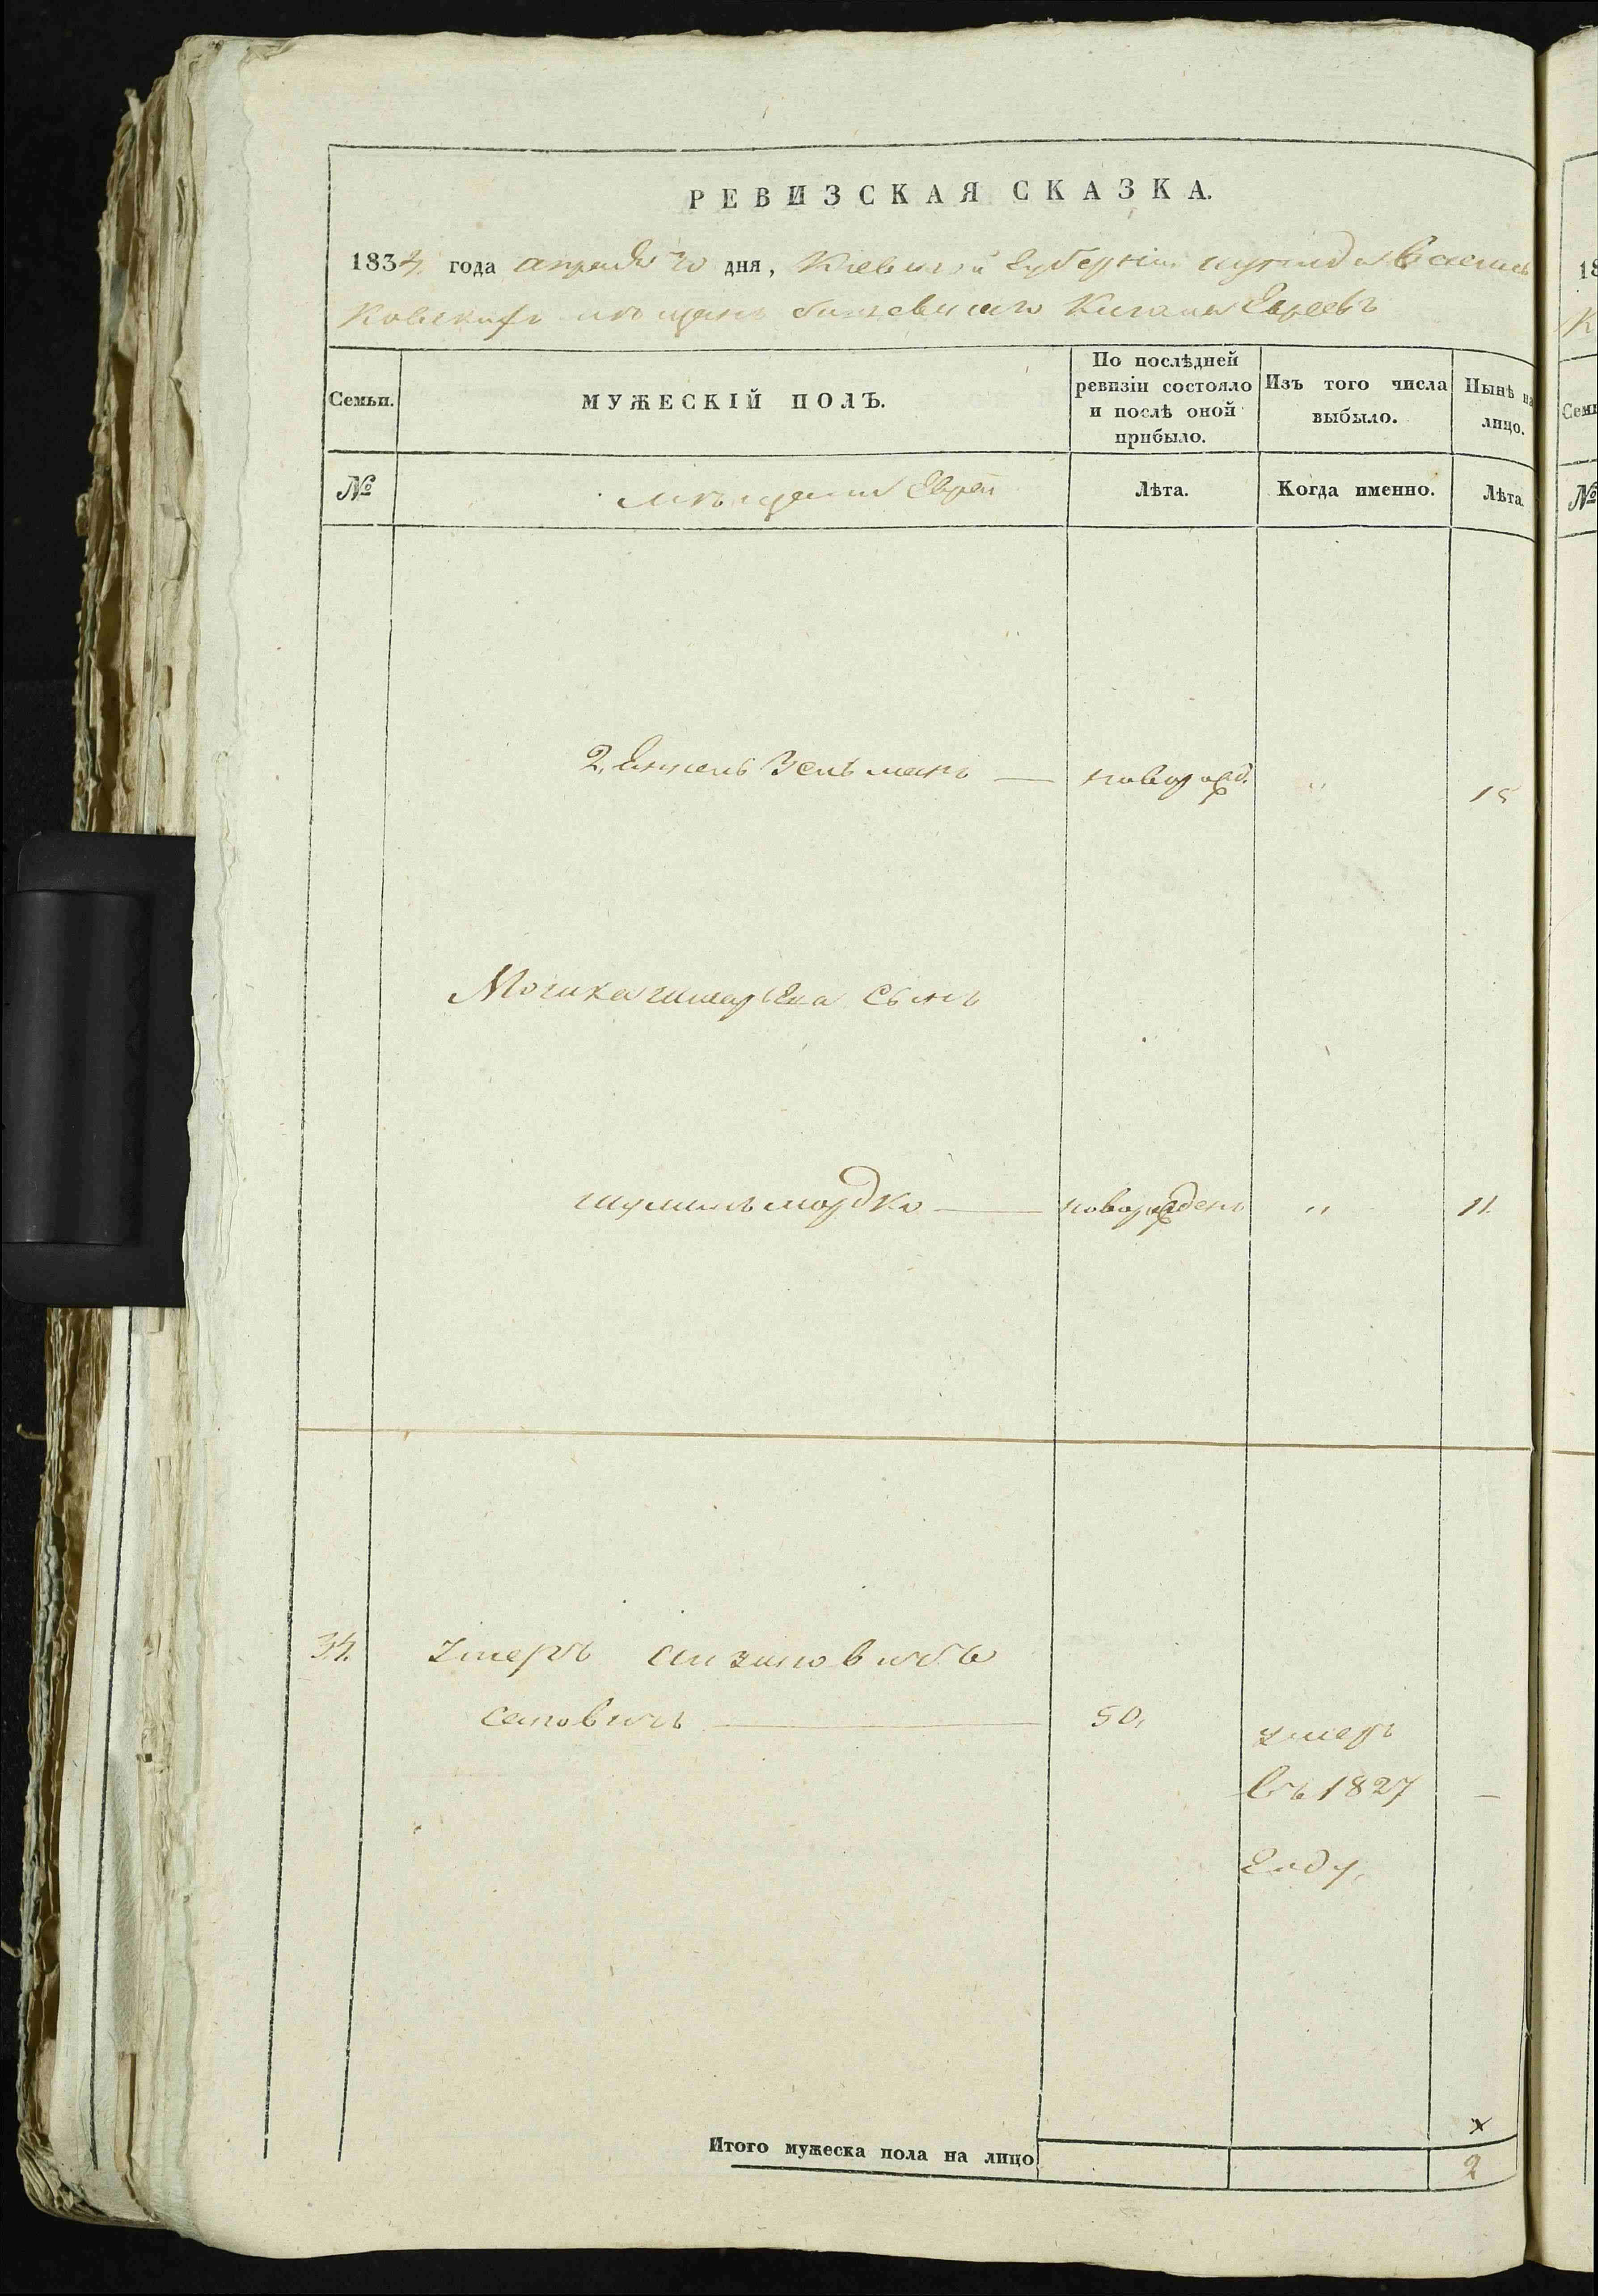 РЕВИЗСКАЯ СКАЗКА.
1834 года апреля 20 дня, Киевской Губернии уезда Василь
ковскихъ мѣщанъ Кагала Евреевъ
Семьи. МУЖЕСКІЙ ПОЛЪ. По послѣдней ревизіи состояло и послѣ оной прибыло. Изъ того числа выбыло. Нынѣ на лицо.
№ мѣщане Евреи Лѣта. Когда именно. Лѣта.
2, Зельманъ — новорожд. " 15
Мошка Шмарьека Сынъ
Шулимъ мордко — новорожденъ " 11.
34.
сеповичъ — 50, умеръ
въ 1827 —
Году,
х
Итого мужеска пола на лицо 2
18
К
Семь
№